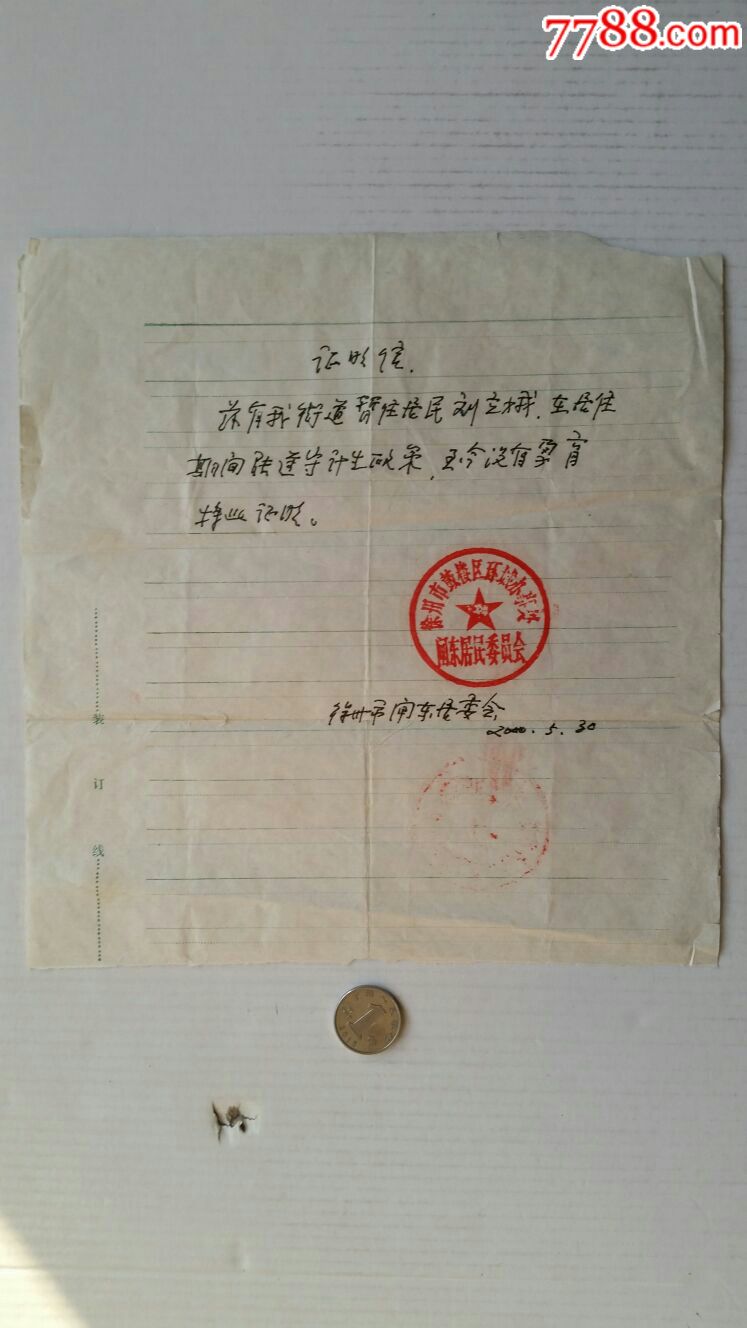 7788.com
证明信.
兹有我街道暂住居民刘立梅.在居住
期间能遵守计生政策,至今没有孕育
特此证明。
徐州市鼓楼区环城办事处
闸东居民委员会
徐州市闸东居委会
2000.5.30
装
订
线